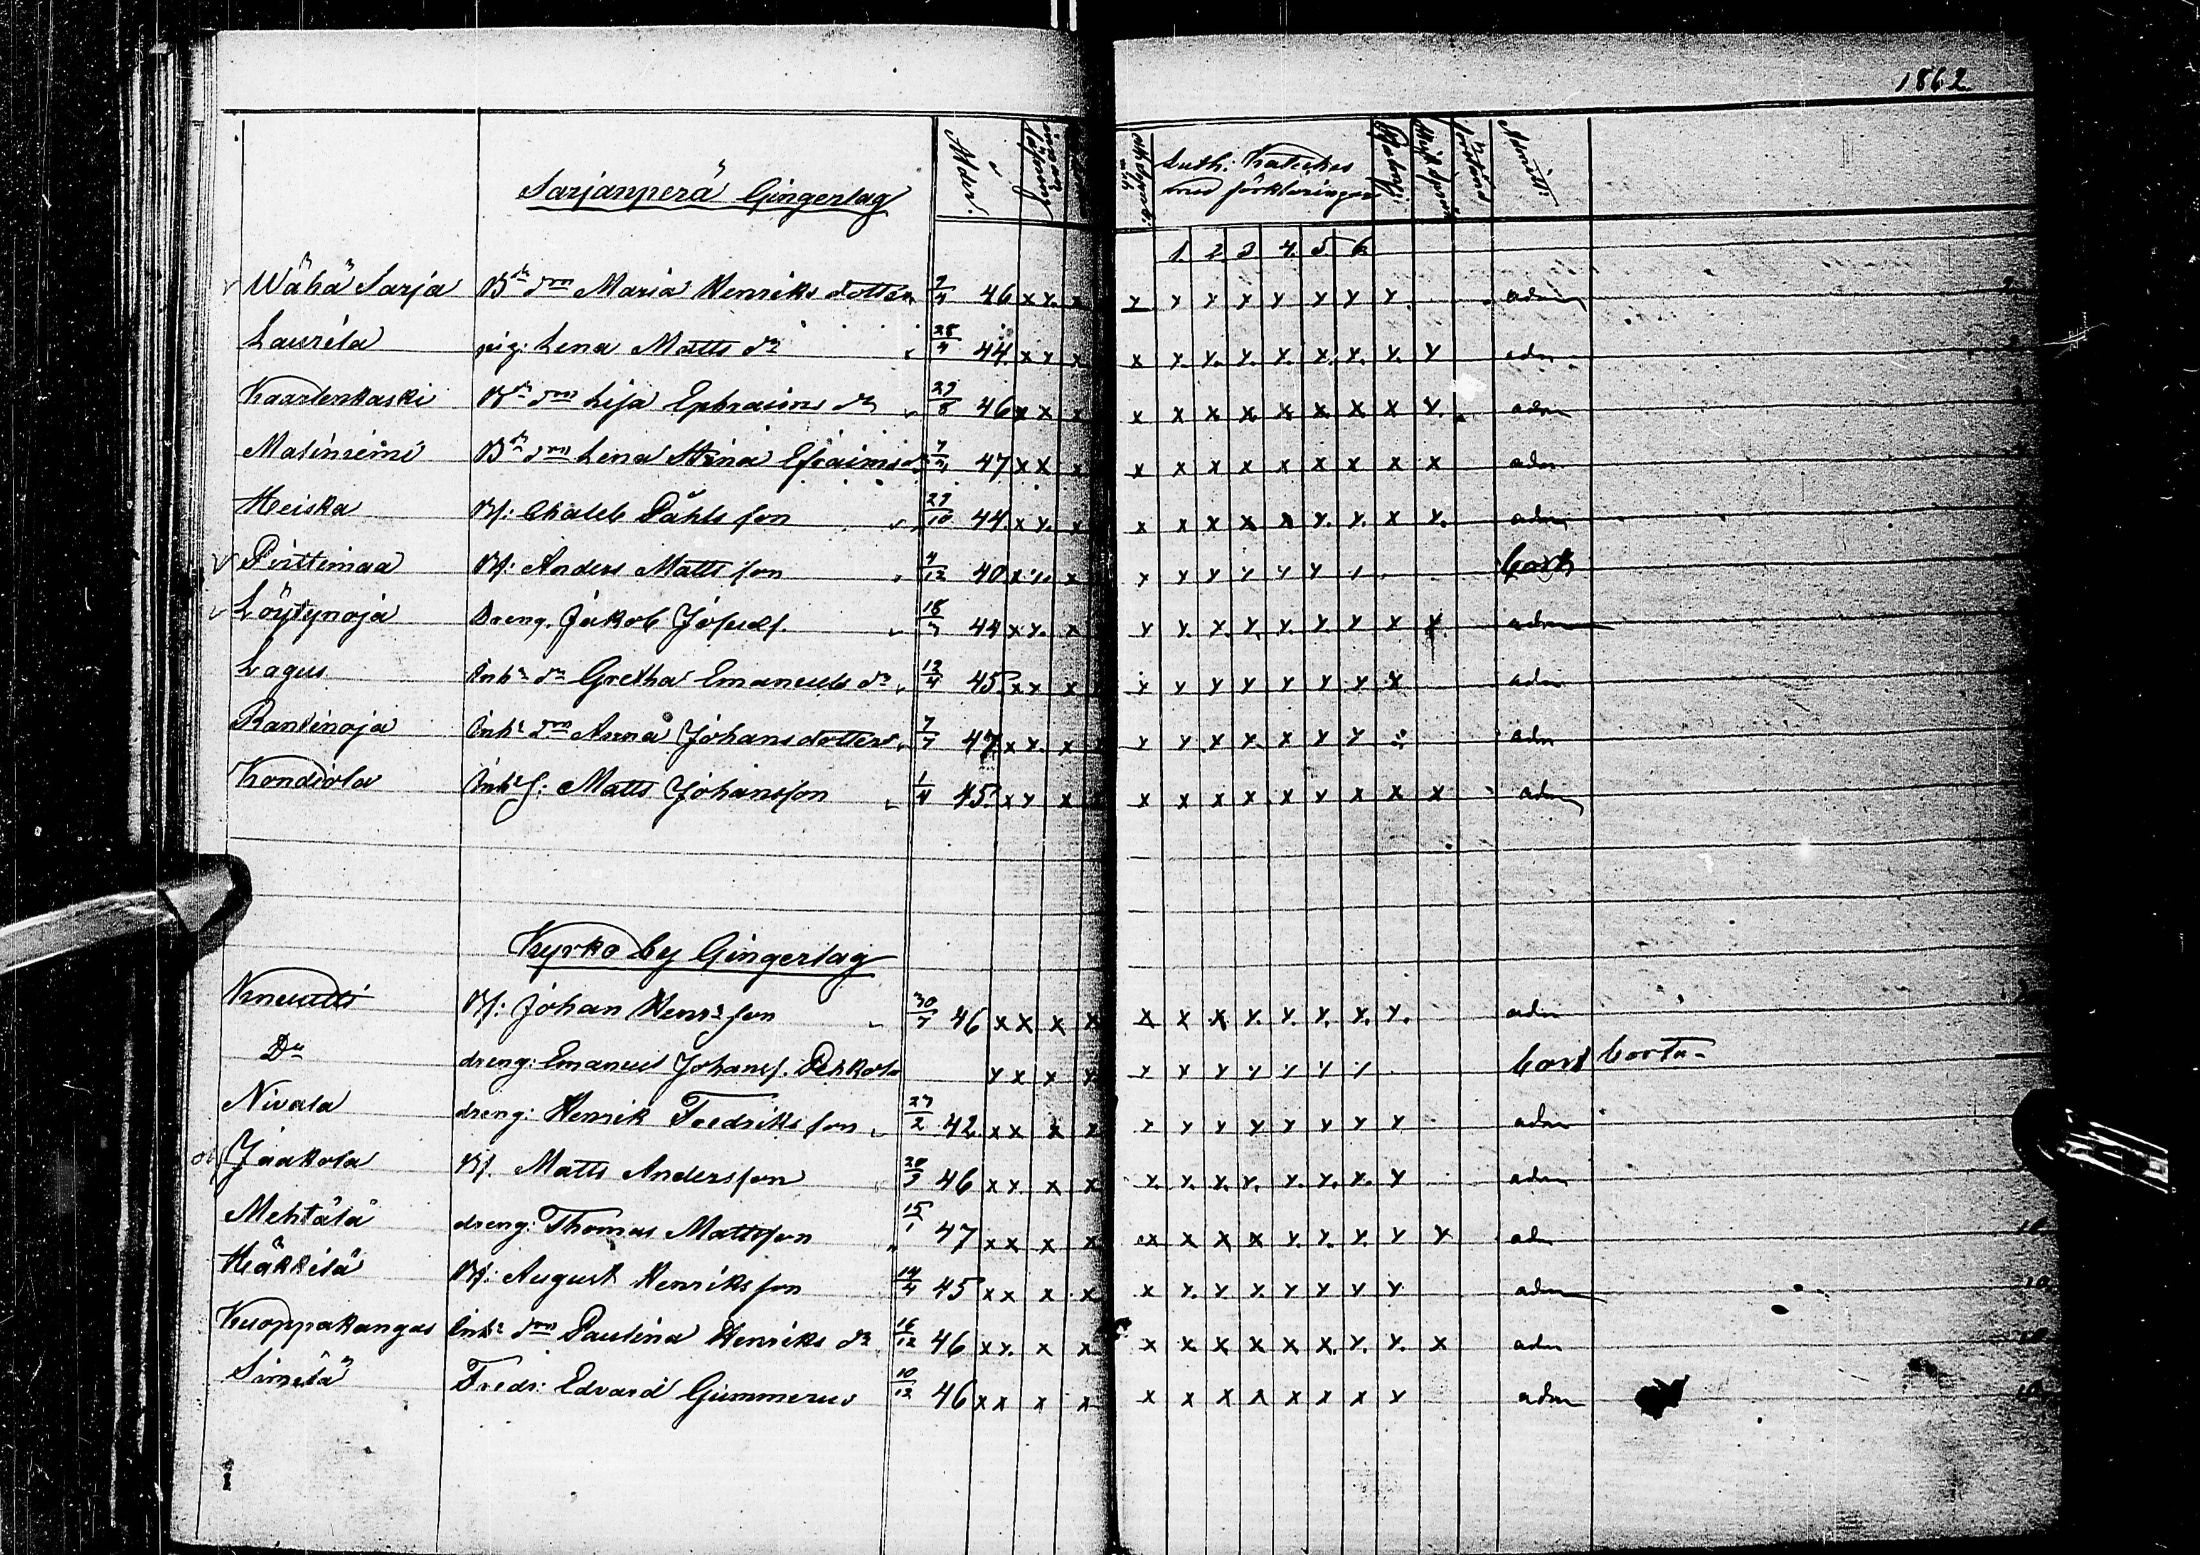 1862
Ålder. Luth: Kateches med förklaringar Admitt:
Sarjanperä Gingerlag
1. 2 3 4. 5 6
Wähä Sarja Bde dron Maria Henriks dotter 46 x x. x x x x x x x x x adm
Laurila pig: Lena Matts dr 28/7 44 x x x x x x x x x x x x adm
Kaartenkaski Bde dron Lisa Ephraims dr 29/8 46 x x x x x x x x x x x x adm
Matinniemi Bde dron Lena Stina Efraimsdr 47 x x x x x x x x x x x x adm
Heiska Bs: Chaleb Påhls son 29/10 44 x x x x x x x x x x x x adm
Pirttimaa Bs: Anders Matts son 4/12 40 x x x x x x x x x x bort
Löytynoja Dreng. Jakob Josefs. 18/7 44 x x x x x x x x x x x x adm
Lagus Inhs dr Gretha Emanuels dr 12/4 45. x x x x x x x x x x x adm
Rantinoja Inhs dron Anna Johans dotter 7/7 47 x x x x x x x x x x adm
Kondiola Inhs s: Matts Johansson 1/4 45. x x x x x x x x x x x x adm
Kyrko by Gingerlag
Knuutti Bs: Johan Henrs son 30/7 46 x x x x x x x x x x x x adm
Do dreng: Emanuel Johans s. Pekkola x x x x x x x x x x x bort borta
Nivala dreng: Henrik Fredriks son 27/2 42 x x x x x x x x x x x x adm
Jaakola Bs. Matts Andersson 20/3 46 x x x x x x x x x x x x adm
Mehtälä dreng: Thomas Mattsson 15/1 47 x x x x x x x x x x x x x adm
Häkkilä Bs: August Henriksson 14/4 45 x x x x x x x x x x x x adm
Kuoppakangas Inhs dron Paulina Henriks dr 16/12 46 x x x x x x x x x x x x x adm
Similä Fredr: Edvard Gummerus 10/12 46 x x x x x x x x x x x x adm